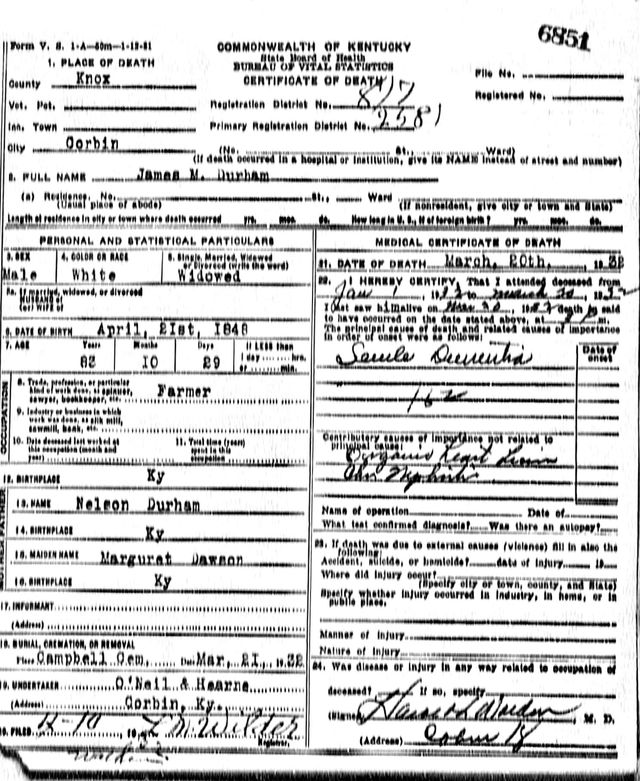 6851
Form V. S. 1-A-50m-1-12-31
COMMONWEALTH OF KENTUCKY
State Board of Health
BUREAU OF VITAL STATISTICS
CERTIFICATE OF DEATH
File No.
Registered No.
1. PLACE OF DEATH
County Knox
Vot. Pct.
Inc. Town
City Corbin
Registration District No. 817
Primary Registration District No. 2581
(No. St., Ward)
(If death occurred in a hospital or institution, give its NAME instead of street and number)
2. FULL NAME James M. Durham
(a) Residence. No. St., Ward
(Usual place of abode) (If nonresident, give city or town and State)
Length of residence in city or town where death occurred yrs. mos. ds. How long in U. S., if of foreign birth? yrs. mos. ds.
PERSONAL AND STATISTICAL PARTICULARS
3. SEX 4. COLOR OR RACE 5. Single, Married, Widowed
or Divorced (write the word)
Male White Widowed
5a. If married, widowed, or divorced
HUSBAND of
(or) WIFE of
6. DATE OF BIRTH April, 21st, 1848
7. AGE Years Months Days If LESS than
1 day hrs.
or min.
83 10 29
OCCUPATION
8. Trade, profession, or particular
kind of work done, as spinner,
sawyer, bookkeeper, etc. Farmer
9. Industry or business in which
work was done, as silk mill,
sawmill, bank, etc.
10. Date deceased last worked at
this occupation (month and
year)
11. Total time (years)
spent in this
occupation
12. BIRTHPLACE Ky
13. NAME Nelson Durham
14. BIRTHPLACE Ky
15. MAIDEN NAME Marguret Dawson
16. BIRTHPLACE Ky
17. INFORMANT
(Address)
18. BURIAL, CREMATION, OR REMOVAL
Place Campbell Cem, Date Mar, 21, 1932
19. UNDERTAKER O'Neil & Hearne
(Address) Corbin, Ky.
20. FILED 19
Registrar.
MEDICAL CERTIFICATE OF DEATH
21. DATE OF DEATH March, 20th, 1932
22. I HEREBY CERTIFY, That I attended deceased from
Jan 1932 to March 20, 1932
I last saw him alive on Mar 20, 1932 death is said
to have occurred on the date stated above, at
The principal cause of death and related causes of importance
in order of onset were as follows:
Date of
onset
Senile Dementia
162
Contributory causes of importance not related to
principal cause:
Name of operation Date of
What test confirmed diagnosis? Was there an autopsy?
23. If death was due to external causes (violence) fill in also the
following:
Accident, suicide, or homicide? date of injury 19
Where did injury occur?
(Specify city or town, county, and State)
Specify whether injury occurred in industry, in home, or in
public place.
Manner of Injury
Nature of Injury
24. Was disease or injury in any way related to occupation of
deceased? If so, specify
(Signed) M. D.
(Address) Corbin Ky